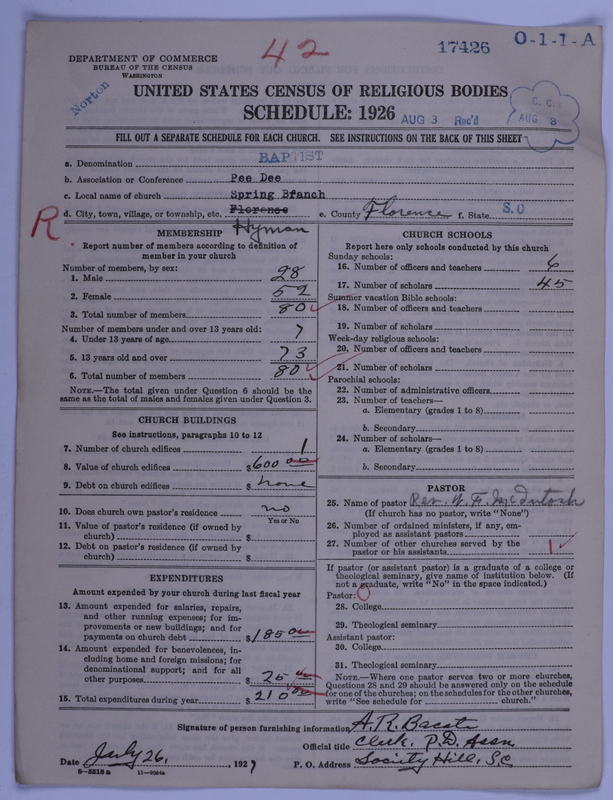 42
17426
O-1-1-A
DEPARTMENT OF COMMERCE
BUREAU OF THE CENSUS
WASHINGTON
Norton
UNITED STATES CENSUS OF RELIGIOUS BODIES
SCHEDULE: 1926
AUG 3 Rec'd
C. C.
AUG 8
FILL OUT A SEPARATE SCHEDULE FOR EACH CHURCH. SEE INSTRUCTIONS ON THE BACK OF THIS SHEET
a. Denomination BAPTIST
b. Association or Conference Pee Dee
c. Local name of church Spring Bfanch
d. City, town, village, or township, etc. Florence e. County Florence f. State S.C
Hyman
R.
MEMBERSHIP
Report number of members according to definition of
member in your church
Number of members, by sex:
1. Male 28
2. Female 52
3. Total number of members 80
Number of members under and over 13 years old:
4. Under 13 years of age 7
5. 13 years old and over 73
6. Total number of members 80
NOTE.—The total given under Question 6 should be the
same as the total of males and females given under Question 3.
CHURCH BUILDINGS
See instructions, paragraphs 10 to 12
7. Number of church edifices 1
8. Value of church edifices $600 00
9. Debt on church edifices $ none
10. Does church own pastor's residence no
Yes or No
11. Value of pastor's residence (if owned by
church) $
12. Debt on pastor's residence (if owned by
church) $
EXPENDITURES
Amount expended by your church during last fiscal year
13. Amount expended for salaries, repairs,
and other running expenses; for im-
provements or new buildings; and for
payments on church debt $185 00
14. Amount expended for benevolences, in-
cluding home and foreign missions; for
denominational support; and for all
other purposes $ 25 00
15. Total expenditures during year $ 210 00
CHURCH SCHOOLS
Report here only schools conducted by this church
Sunday schools:
16. Number of officers and teachers 6
17. Number of scholars 45
Summer vacation Bible schools:
18. Number of officers and teachers
19. Number of scholars
Week-day religious schools:
20. Number of officers and teachers
21. Number of scholars
Parochial schools:
22. Number of administrative officers
23. Number of teachers—
a. Elementary (grades 1 to 8)
b. Secondary
24. Number of scholars—
a. Elementary (grades 1 to 8)
b. Secondary
PASTOR
25. Name of pastor Rev. W. F. McIntosh
(If church has no pastor, write "None")
26. Number of ordained ministers, if any, em-
ployed as assistant pastors
27. Number of other churches served by the
pastor or his assistants 1
If pastor (or assistant pastor) is a graduate of a college or
theological seminary, give name of institution below. (If
not a graduate, write "No" in the space indicated.)
Pastor: O
28. College
29. Theological seminary
Assistant pastor:
30. College
31. Theological seminary
NOTE.—Where one pastor serves two or more churches,
Questions 28 and 29 should be answered only on the schedule
for one of the churches; on the schedules for the other churches,
write "See schedule for church."
Signature of person furnishing information A. R.
Official title Clerk, P. D. Assn
Date July 26, 1927 P. O. Address Society Hill, S.C
8—5518a 11—9084a